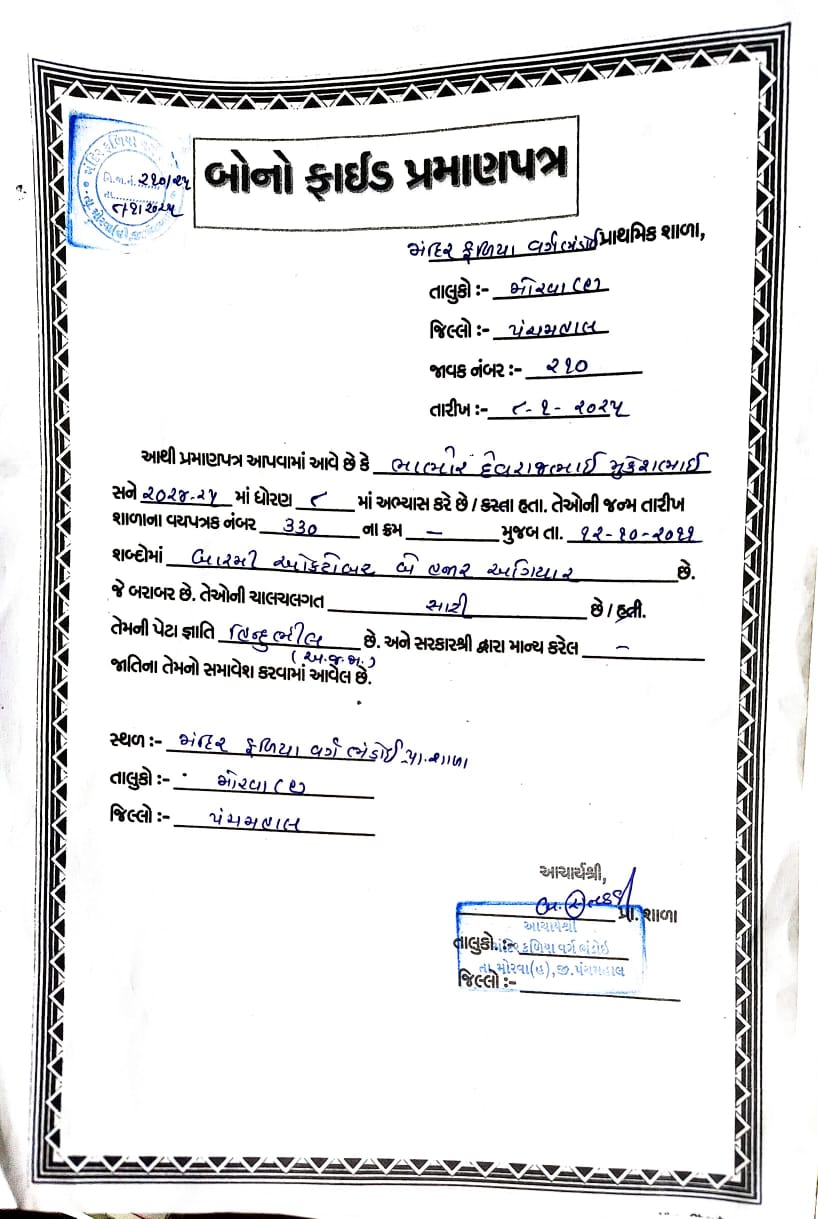 મંદિર ફળિયા વર્ગ
વિ.જા.નં. ૨૧૦/૨૫
તા.
બોનો ફાઈડ પ્રમાણપત્ર
મંદિર ફળિયા વર્ગ ભંડોઈ પ્રાથમિક શાળા,
તાલુકો :- મોરવા (હ)
જિલ્લો :- પંચમહાલ
જાવક નંબર :- ૨૧૦
તારીખ :- ૮-૧-૨૦૨૫
આથી પ્રમાણપત્ર આપવામાં આવે છે કે ભાભોર દેવરાજભાઈ મુકેશભાઈ
સને ૨૦૨૪-૨૫ માં ધોરણ ૮ માં અભ્યાસ કરે છે / કરતા હતા. તેઓની જન્મ તારીખ
શાળાના વયપત્રક નંબર ૩૩૦ ના ક્રમ – મુજબ તા. ૧૨-૧૦-૨૦૧૧
શબ્દોમાં બારમી ઓક્ટોબર બે હજાર અગિયાર છે.
જે બરાબર છે. તેઓની ચાલચલગત સારી છે / હતી.
તેમની પેટા જ્ઞાતિ હિન્દુ ભીલ છે. અને સરકારશ્રી દ્વારા માન્ય કરેલ –
(અ.જ.જા.)
જાતિના તેમનો સમાવેશ કરવામાં આવેલ છે.
સ્થળ :- મંદિર ફળિયા વર્ગ ભંડોઈ પ્રા.શાળા
તાલુકો :- મોરવા (હ)
જિલ્લો :- પંચમહાલ
આચાર્યશ્રી,
પ્રા. શાળા
આચાર્યશ્રી
તાલુકો :-
મંદિર ફળિયા વર્ગ ભંડોઈ
તા.મોરવા(હ),જી.પંચમહાલ
જિલ્લો :-